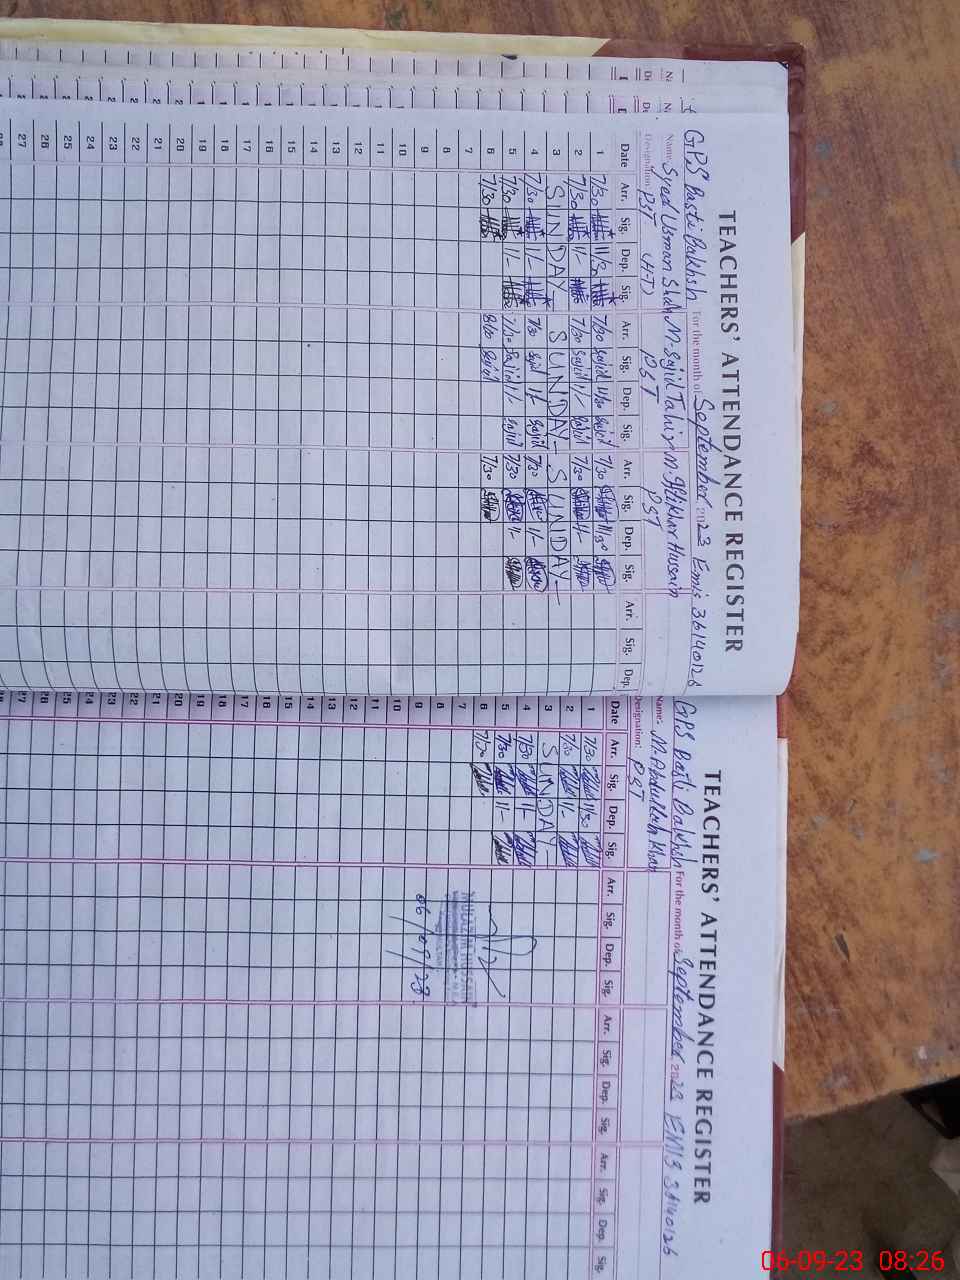 TEACHERS' ATTENDANCE REGISTER
GPS Basti Bakhsh For the month of September 2023 Emis 36140126
Name: Syed Usman Shah M-Sajid Tahir M. Iftikhar Hussain
Designation: PST (H-T) PST PST
Date Arr. Sig. Dep. Sig. Arr. Sig. Dep. Sig. Arr. Sig. Dep. Sig. Arr. Sig. Dep.
1 7/30 11/30 7/30 Sajid 11/30 Sajid 7/30 11/30
2 7/30 1/- 7/30 Sajid 1/- Sajid 7/30 1/-
3 SUNDAY SUNDAY - SUNDAY -
4 7/30 1/- 7/30 Sajid 1/- Sajid 7/30 1/-
5 7/30 1/- 7/30 Sajid 1/- Sajid 7/30 1/-
6 7/30 Sajid 7/30
7
8
9
10
11
12
13
14
15
16
17
18
19
20
21
22
23
24
25
26
27
TEACHERS' ATTENDANCE REGISTER
GPS Basti Bakhsh For the month of September 2023 EMIS 36140126
Name: M. Abdullah Khan
Designation: PST
Date Arr. Sig. Dep. Sig. Arr. Sig. Dep. Sig. Arr. Sig. Dep. Sig. Arr. Sig. Dep. Sig.
1 7/30 11/30
2 7/30 1/-
3 SUNDAY
4 7/30 1/-
5 7/30 1/-
6 7/30
7
8
9
10
11
12
13
14
15
16
17
18
19
20
21
22
23
24
25
26
27
MULAZIM HUSSAIN
06/09/23
06-09-23 08:26